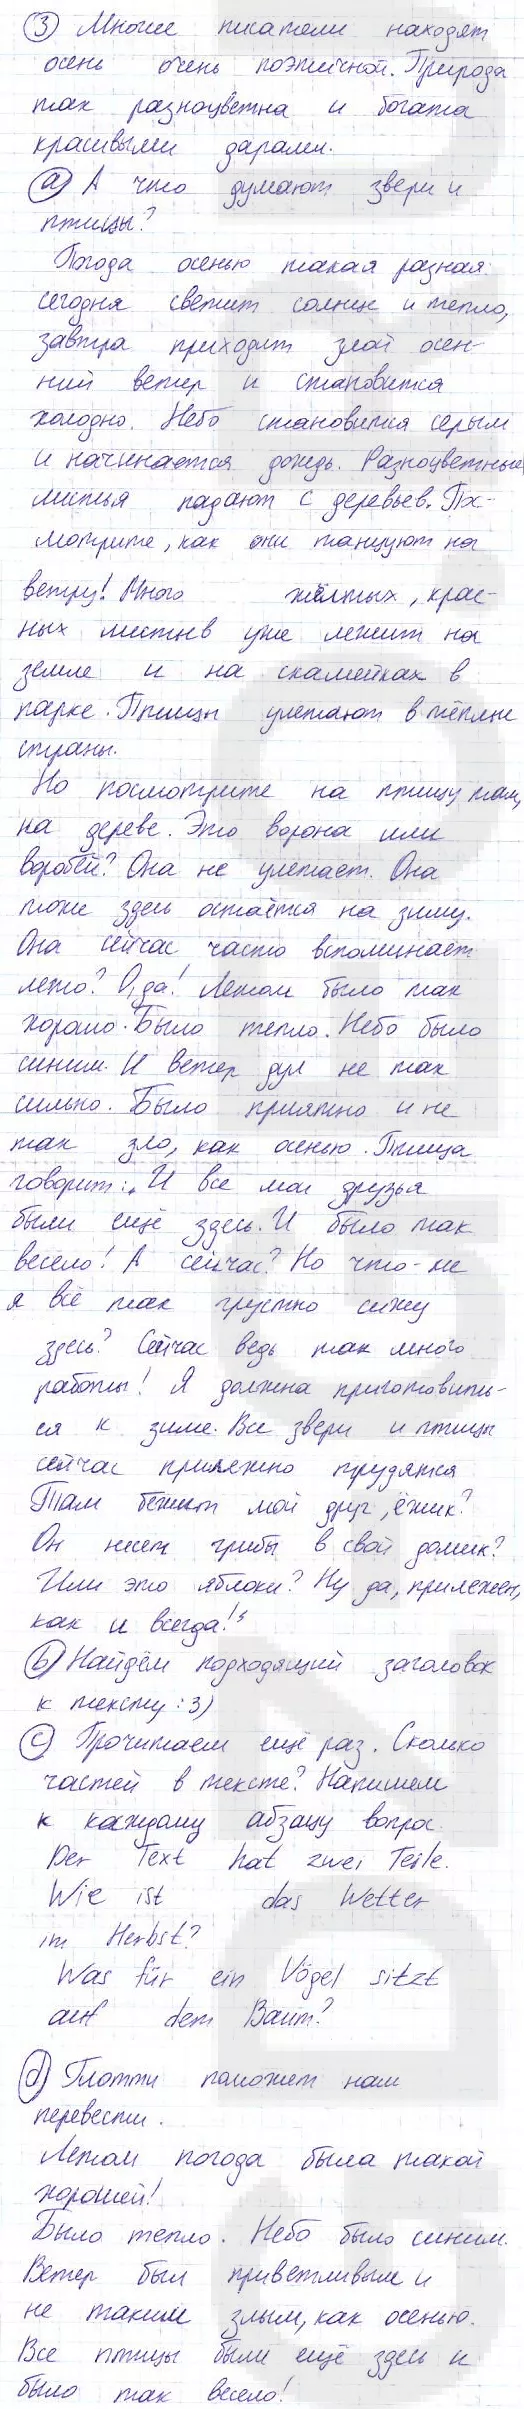 ③ Многие писатели находят
осень очень поэтичной. Природа
так разноцветна и богата
красивыми дарами.
ⓐ А что думают звери и
птицы?
Погода осенью такая разная:
сегодня светит солнце и тепло,
завтра приходит злой осен-
ний ветер и становится
холодно. Небо становится серым
и начинается дождь. Разноцветные
листья падают с деревьев. По-
смотрите, как они танцуют на
ветру! Много жёлтых, крас-
ных листьев уже лежит на
земле и на скамейках в
парке. Птицы улетают в тёплые
страны.
Но посмотрите на птицу там,
на дереве. Это ворона или
воробей? Она не улетает. Она
тоже здесь остаётся на зиму.
Она сейчас часто вспоминает
лето? О, да! Летом было так
хорошо. Было тепло. Небо было
синим. И ветер дул не так
сильно. Было приятно и не
так зло, как осенью. Птица
говорит: „И все мои друзья
были ещё здесь. И было так
весело! А сейчас? Но что-же
я всё так грустно сижу
здесь? Сейчас ведь так много
работы! Я должна приготовить-
ся к зиме. Все звери и птицы
сейчас прилежно трудятся
Там бежит мой друг, ёжик?
Он несет грибы в свой домик?
Или это яблоки? Ну да, прилежен,
как и всегда!"
ⓑ Найдём подходящий заголовок
к тексту: 3)
ⓒ Прочитаем ещё раз. Сколько
частей в тексте? Напишем
к каждому абзацу вопрос.
Der Text hat zwei Teile.
Wie ist das Wetter
im Herbst?
Was für ein Vögel sitzt
auf dem Baum?
ⓓ Плотти поможет нам
перевести.
Летом погода была такой
хорошей!
Было тепло. Небо было синим.
Ветер был приветливым и
не таким злым, как осенью.
Все птицы были ещё здесь и
было так весело!